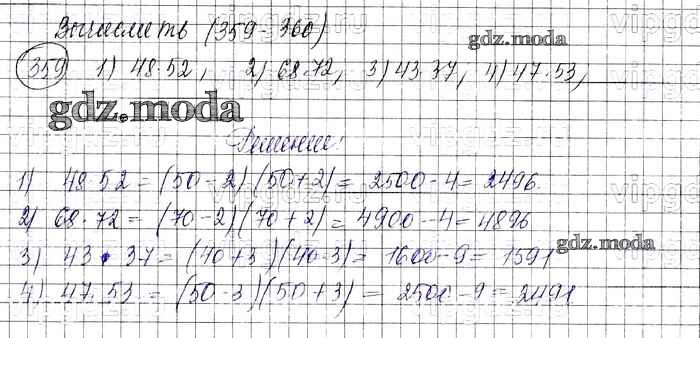 Вычислить (359-360)
gdz.moda
359 1) 48·52, 2) 68·72, 3) 43·37, 4) 47·53,
gdz.moda
Решение:
1) 48·52 = (50-2)(50+2) = 2500-4 = 2496.
2) 68·72 = (70-2)(70+2) = 4900-4 = 4896
3) 43·37 = (40+3)(40-3) = 1600-9 = 1591
gdz.moda
4) 47·53 = (50-3)(50+3) = 2500-9 = 2491